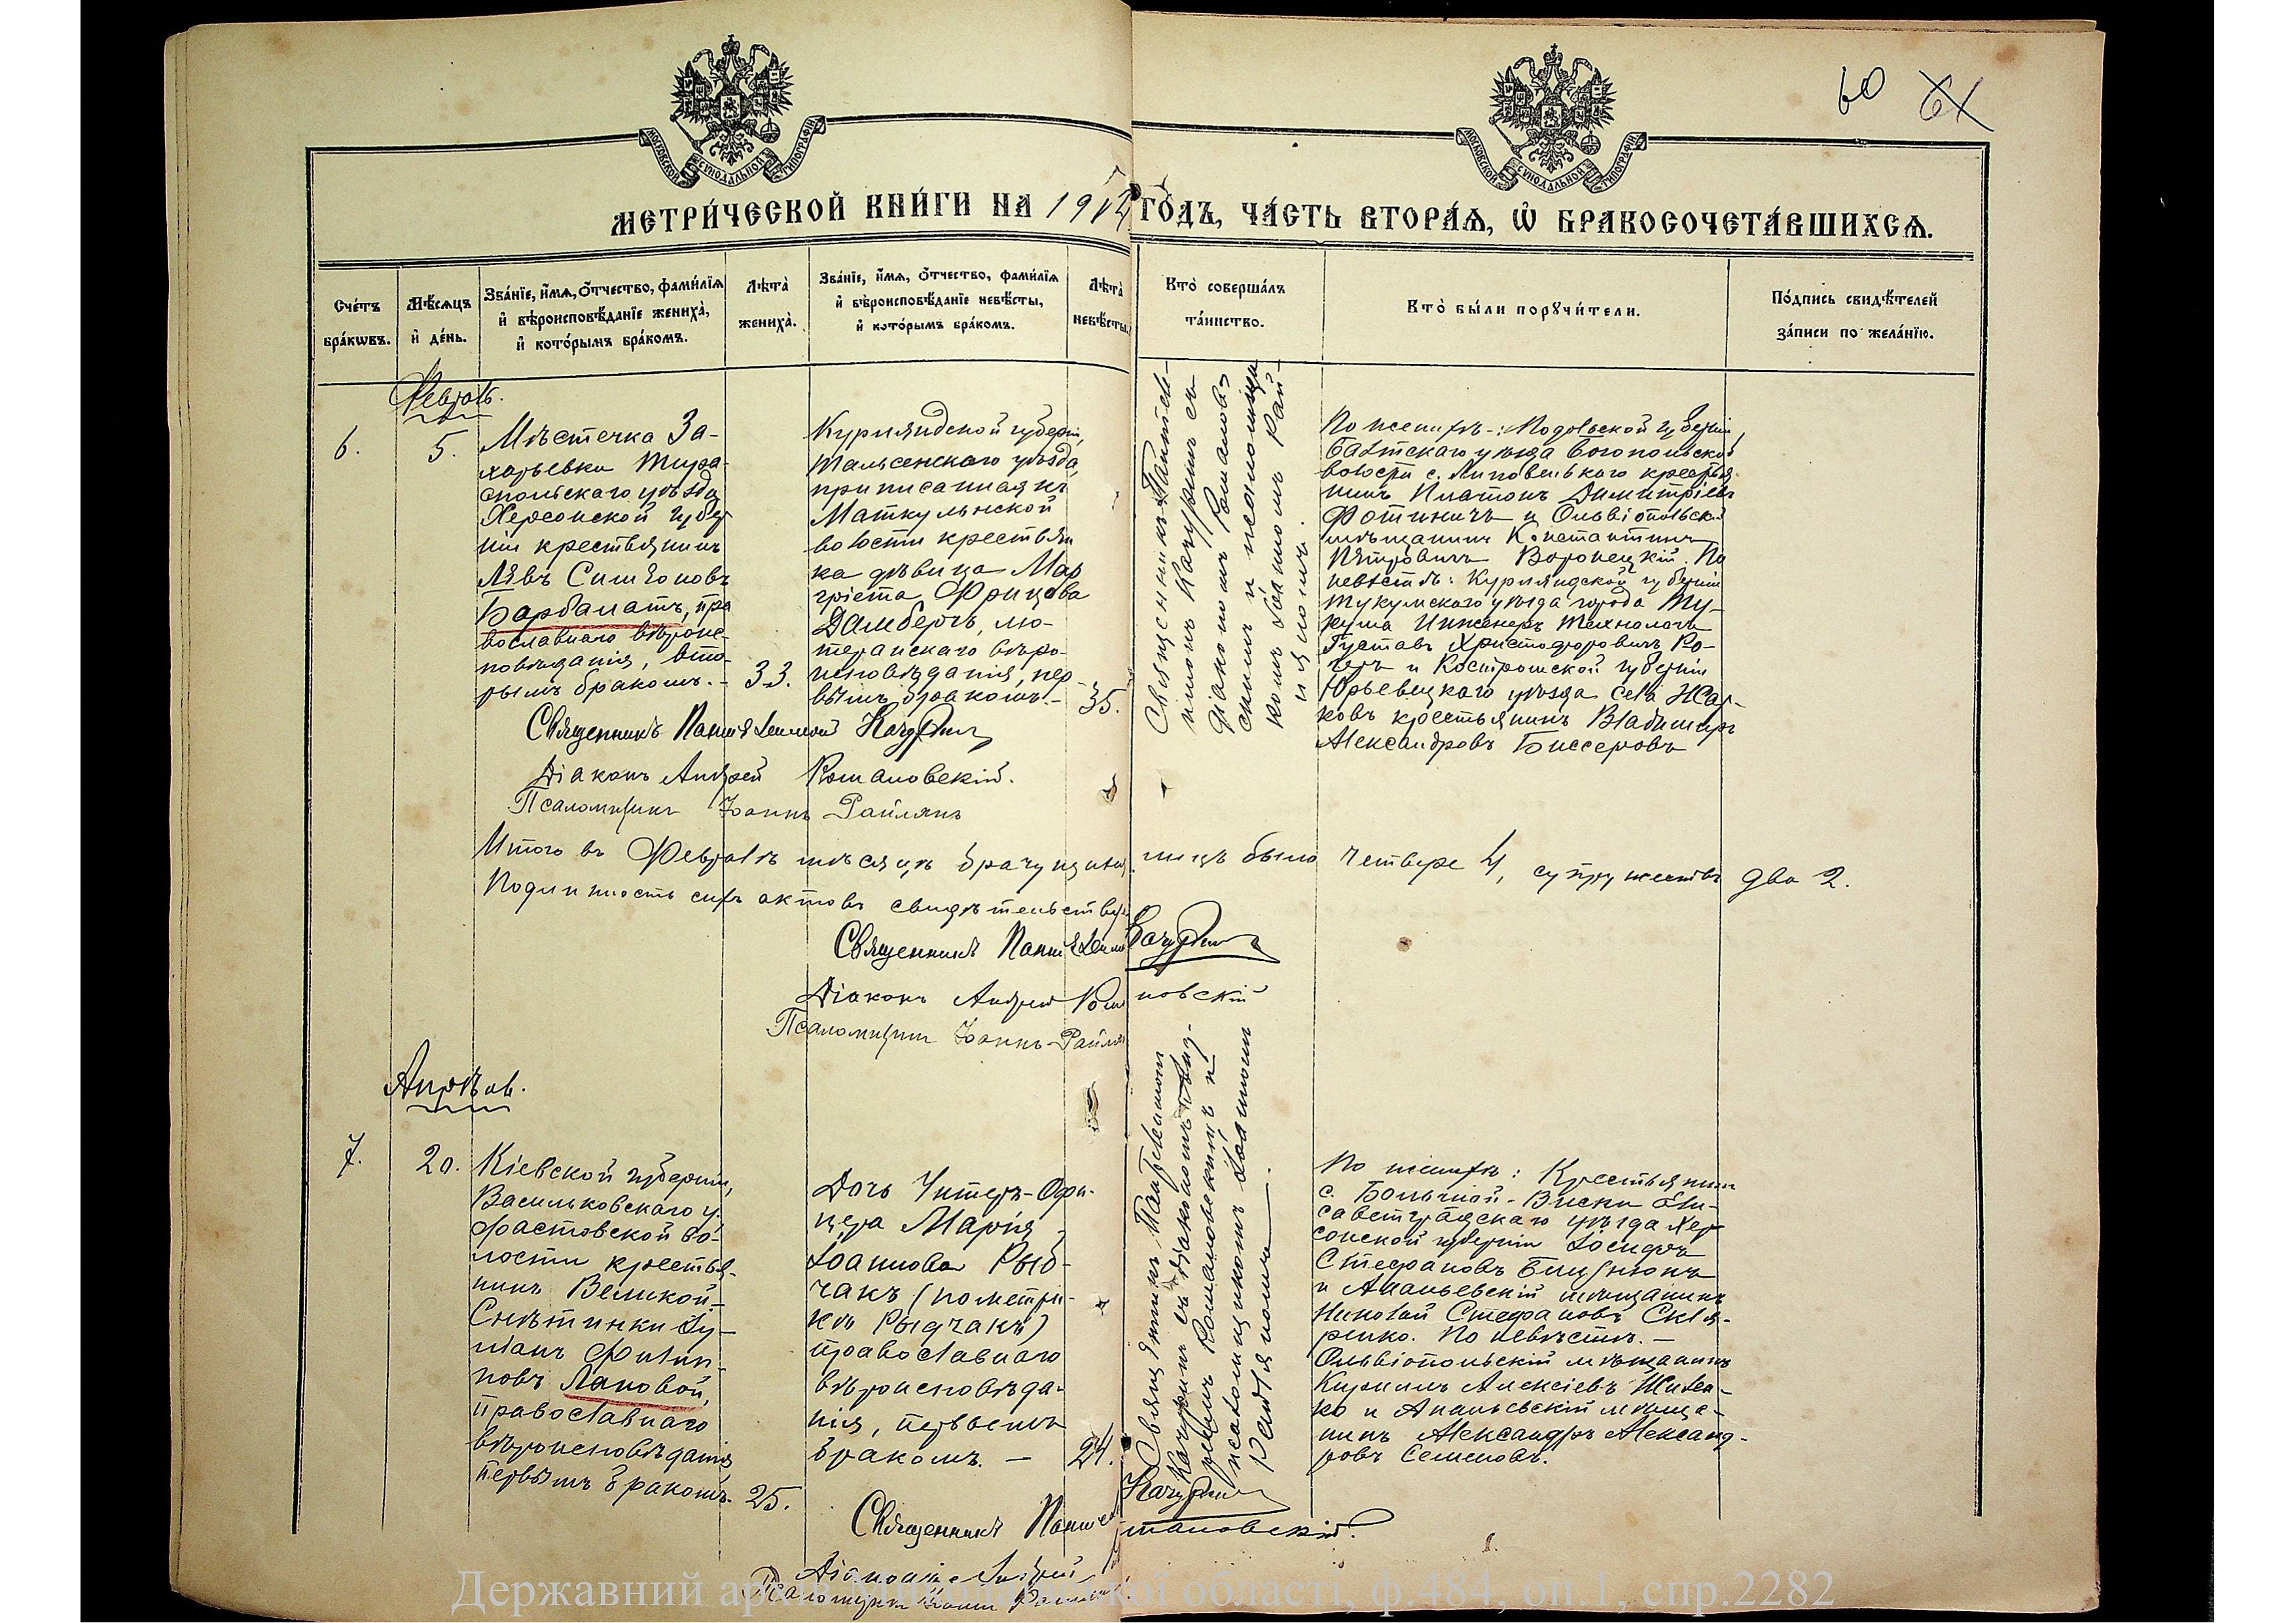 60 61
МОСКОВСКОЙ СУНОДАЛЬНОЙ ТИПОГРАФІИ
МОСКОВСКОЙ СУНОДАЛЬНОЙ ТИПОГРАФІИ
МЕТРИ́ЧЕСКОЙ КНИ́ГИ НА 1912 ГО́ДЪ, ЧА́СТЬ ВТОРА́Ѧ, Ѽ БРАКОСОЧЕТА́ВШИХСѦ.
Сче́тъ бра́кѡвъ.
Мѣ́сѧцъ и҆ де́нь.
Зва́нїе, и҆́мѧ, ѻ҆́тчество, фами́лїѧ и҆ вѣроисповѣ́данїе жениха̀, и҆ кото́рымъ бра́комъ.
Лѣ́та̀ жениха̀.
Зва́нїе, и҆́мѧ, ѻ҆́тчество, фами́лїѧ и҆ вѣроисповѣ́данїе невѣ́сты, и҆ кото́рымъ бра́комъ.
Лѣ́та̀ невѣ́сты.
Кто̀ соверша́лъ та́инство.
Кто̀ бы́ли порꙋчи́тели.
По́дпись свидѣ́телей за́писи по жела́нїю.
Февраль.
6.
5.
Мѣстечка За-
харьевки Тира-
спольскаго уѣзда
Херсонской губер
ніи крестьянинъ
Левъ Симеоновъ
Барбалатъ, пра
вославнаго вѣроис-
повѣданія, вто-
рымъ бракомъ. -
33.
Курляндской губерніи,
Тальсенскаго уѣзда,
приписанная къ
Маткульнской
волости крестьян
ка дѣвица Мар
гріета Фрицова
Дамбергъ, лю-
теранскаго вѣро-
исповѣданія, пер-
вымъ бракомъ. -
35.
Священникъ Пантелеи-
монъ Качуринъ съ
діакономъ Романов-
скимъ и псаломщи
комъ Іоанномъ Рай-
ляномъ.
По женихѣ: Подольской губерніи,
Балтскаго уѣзда Богопольской
волости с. Липовенькаго крестья-
нинъ Платонъ Димитріевъ
Фотиничъ и Ольвіопольскій
мѣщанинъ Константинъ
Петровичъ Воронецкій. По
невѣстѣ: Курляндской губерніи
Тукумскаго уѣзда города Ту-
кума Инженеръ Технологъ
Густавъ Христофоровичъ Ро-
геръ и Костромской губерніи
Юрьевецкаго уѣзда села
крестьянинъ Владиміръ
Александровъ Биссеровъ
Священникъ Пантелеимонъ Качуринъ
Діаконъ Андрей Романовскій.
Псаломщикъ Іоаннъ Райлянъ
Итого въ Февралѣ мѣсяцѣ брачущихся лицъ было четверо 4, супружествъ два 2.
Подлинность сихъ актовъ свидѣтельству
Священникъ Пантелеим Качуринъ
Діаконъ Андрей Ром новскій
Псаломщикъ Іоаннъ Райлян
Апрѣль.
7.
20.
Кіевской губерніи,
Васильковскаго у.
Фастовской во-
лости крестья-
нинъ Великой-
Снѣтинки Лу-
кіанъ Филип-
повъ Лановой,
православнаго
вѣроисповѣданія
первымъ бракомъ.
25.
Дочь Унтеръ-Офи-
цера Марія
Іоаннова Рыб-
чакъ (по метри-
кѣ Рыдчакъ)
православнаго
вѣроисповѣда-
нія, первымъ
бракомъ. -
24.
Священникъ Пантелеимонъ
Качуринъ съ діакономъ Анд-
реемъ Романовскимъ и
псаломщикомъ Іоанномъ
Райляномъ.
По женихѣ: Крестьянинъ
с. Большой-Виски Ели-
саветградскаго уѣзда Хер
сонской губерніи Іосифъ
Стефановъ
и Ананьевскій мѣщанинъ
Николай Стефановъ Скля-
ренко. По невѣстѣ. -
Ольвіопольскій мѣщанинъ
Кириллъ Алексіевъ
и Ананьевскій мѣща-
нинъ Александръ Александ-
ровъ Семеновъ.
Священникъ Пантел Качуринъ
Діаконъ Андрей мановскій.
Псаломщикъ Іоаннъ Райлянъ
Державний архів Миколаївської області, ф.484, оп.1, спр.2282